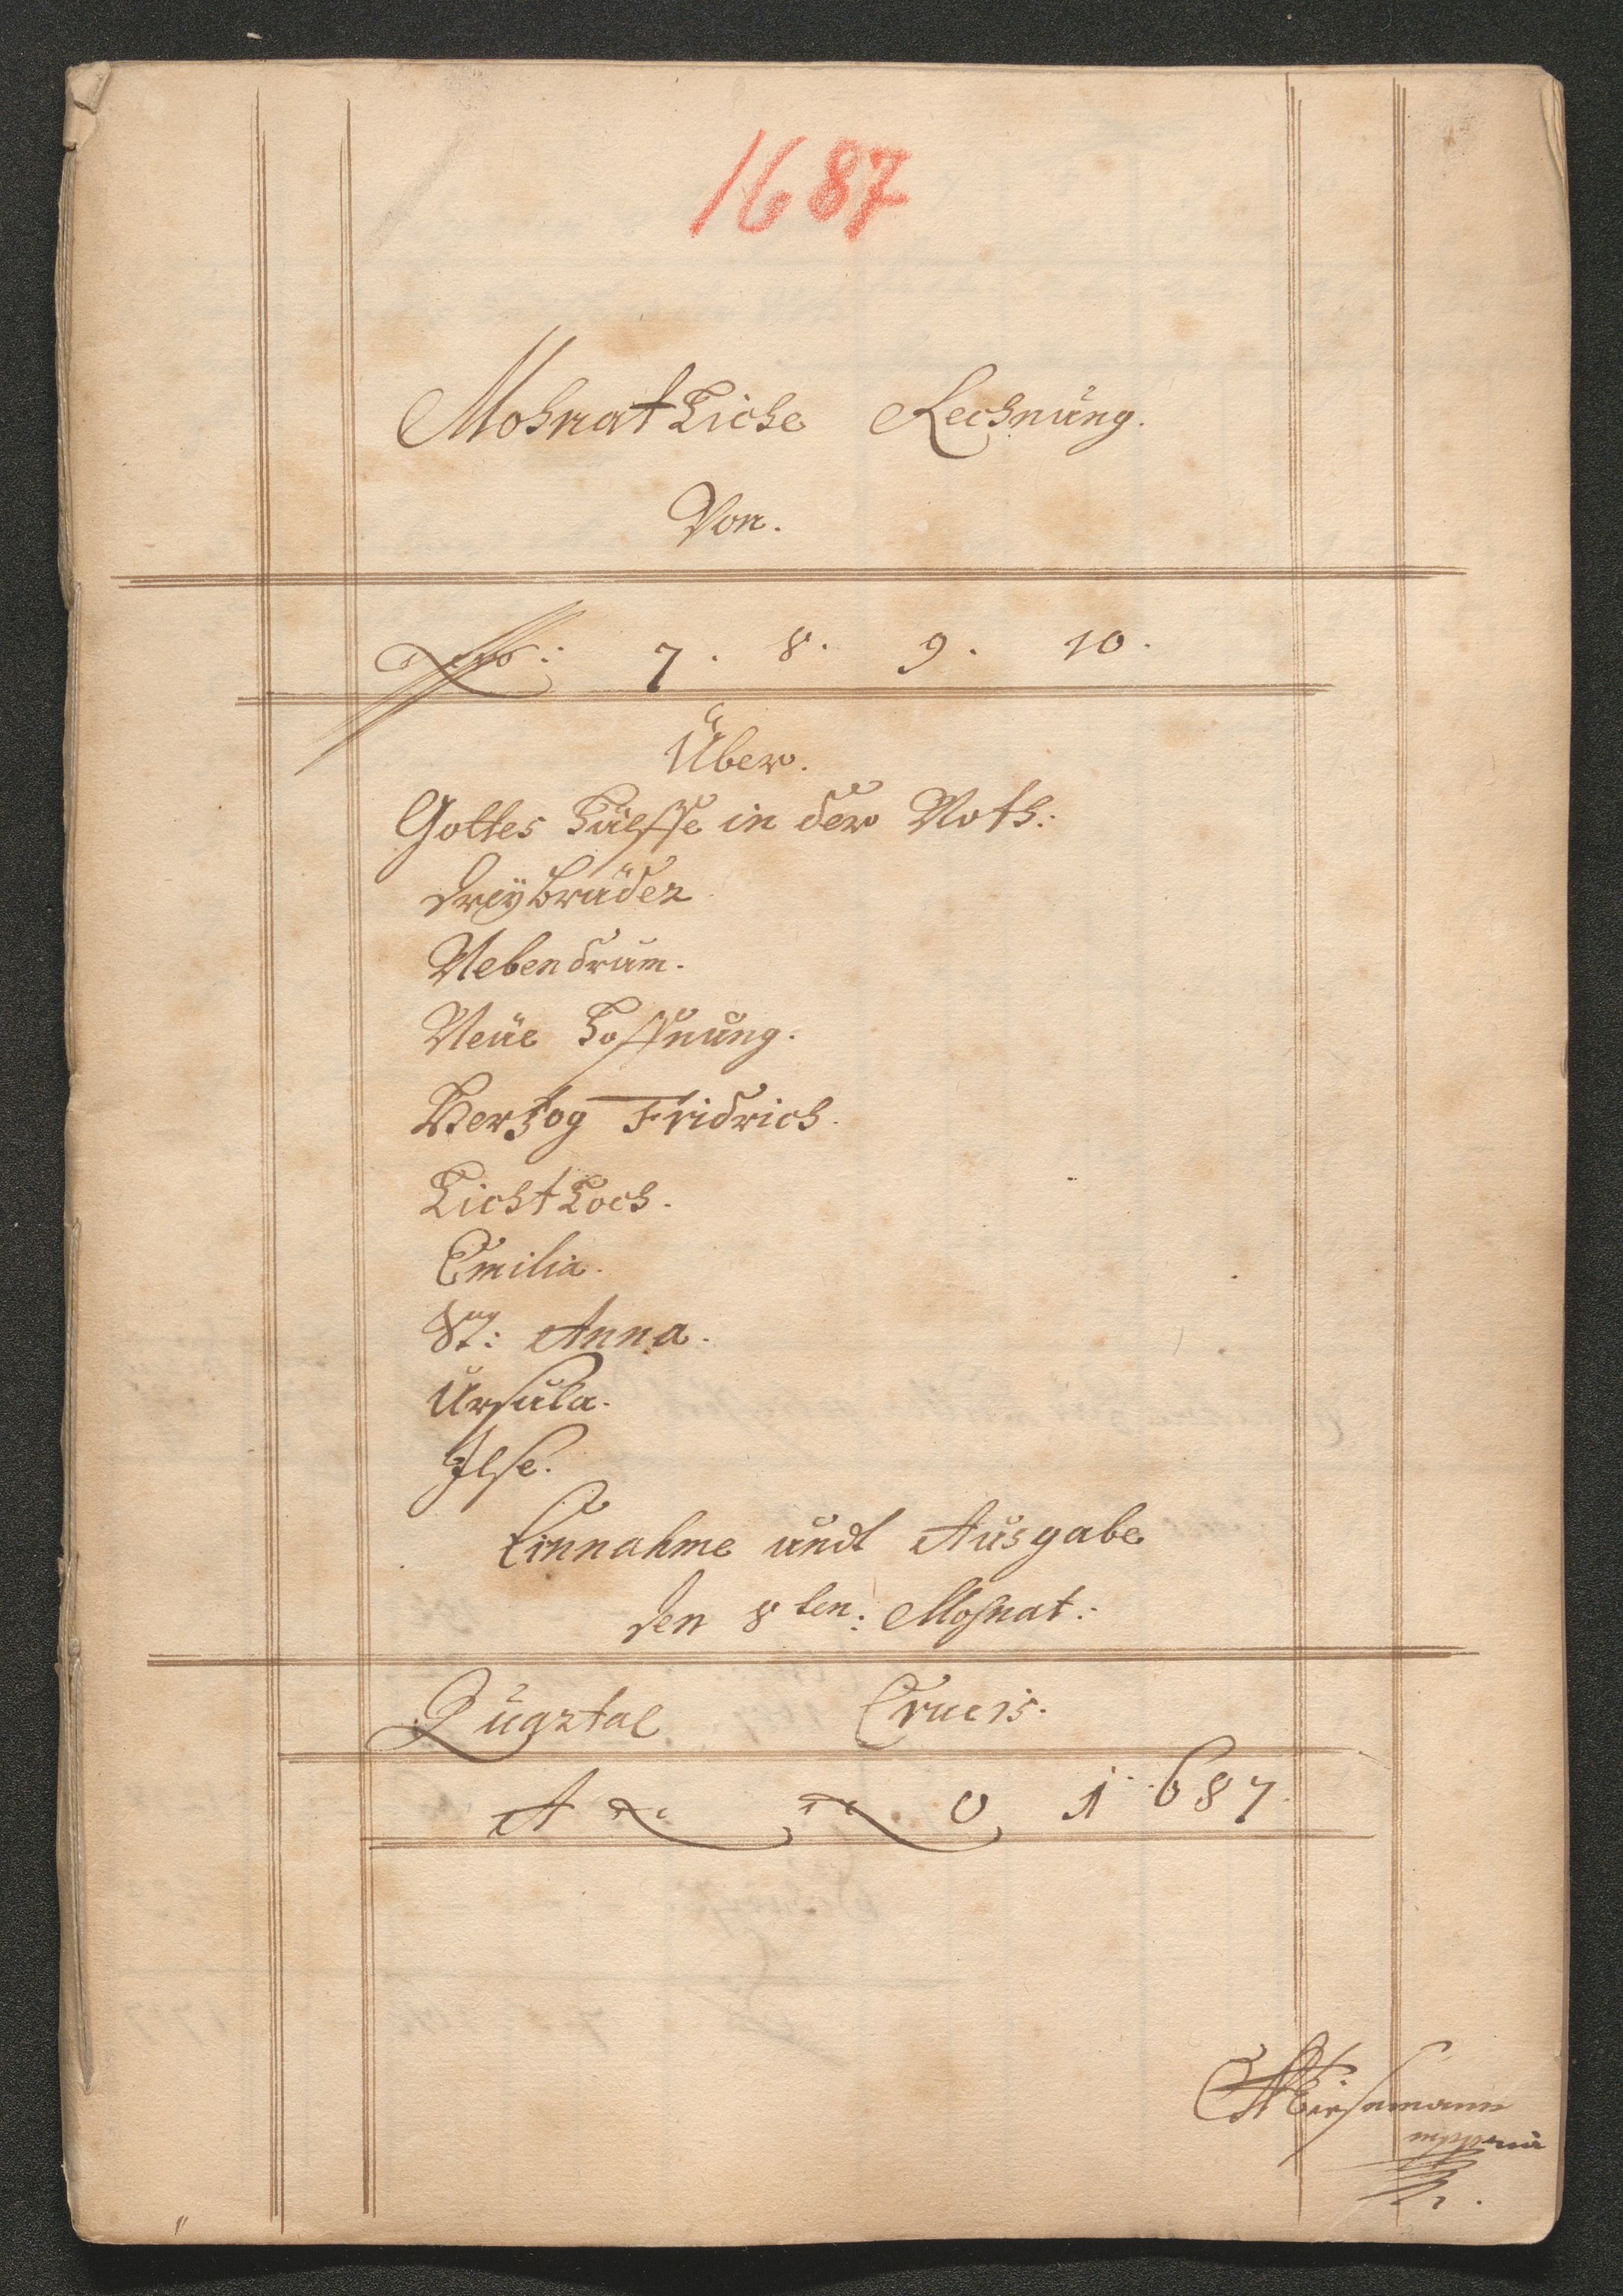 1687
Mohnatliche Rechnung.
Von.
7. 8. 9. 10.
Über.
Gottes Hülffe in der Noth:
Dreÿbrüder
Nebendrum.
Neüe Hoffnung.
Hertzog Fridrich.
Lichtloch.
Emilia.
St: Anna.
Ursula.
Ilse.
Einnahme undt Ausgabe
den 8ten: Mohnat:
Quartal Crucis.
A n n o 1687.